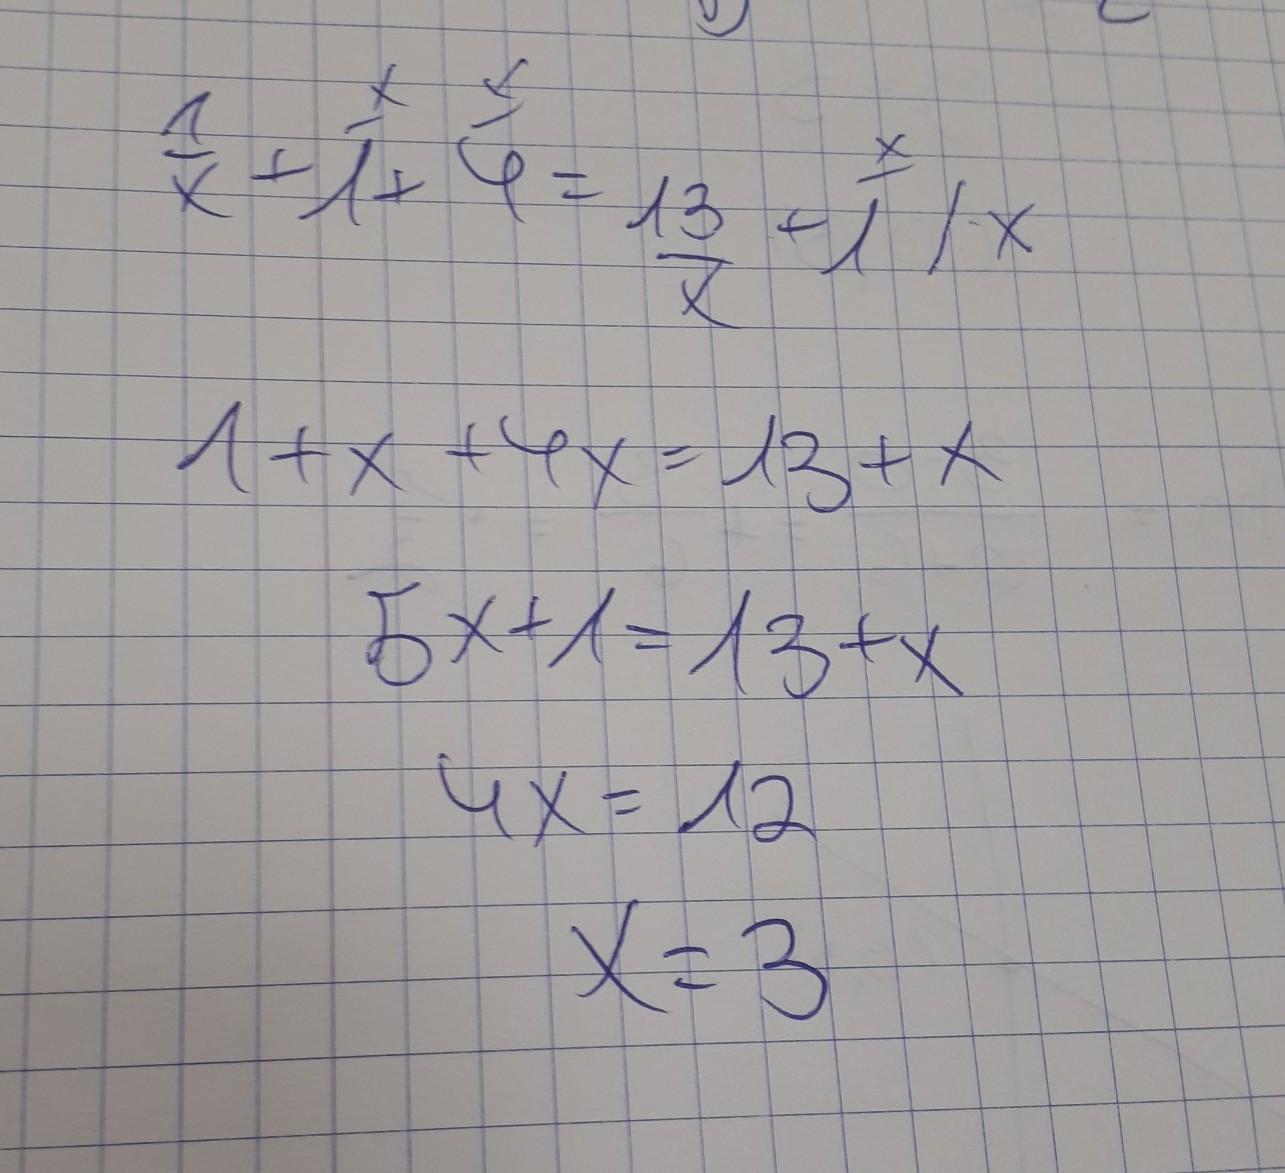 1/x + 1 + 4 = 13/x + 1 /·x
1 + x + 4x = 13 + x
5x + 1 = 13 + x
4x = 12
x = 3